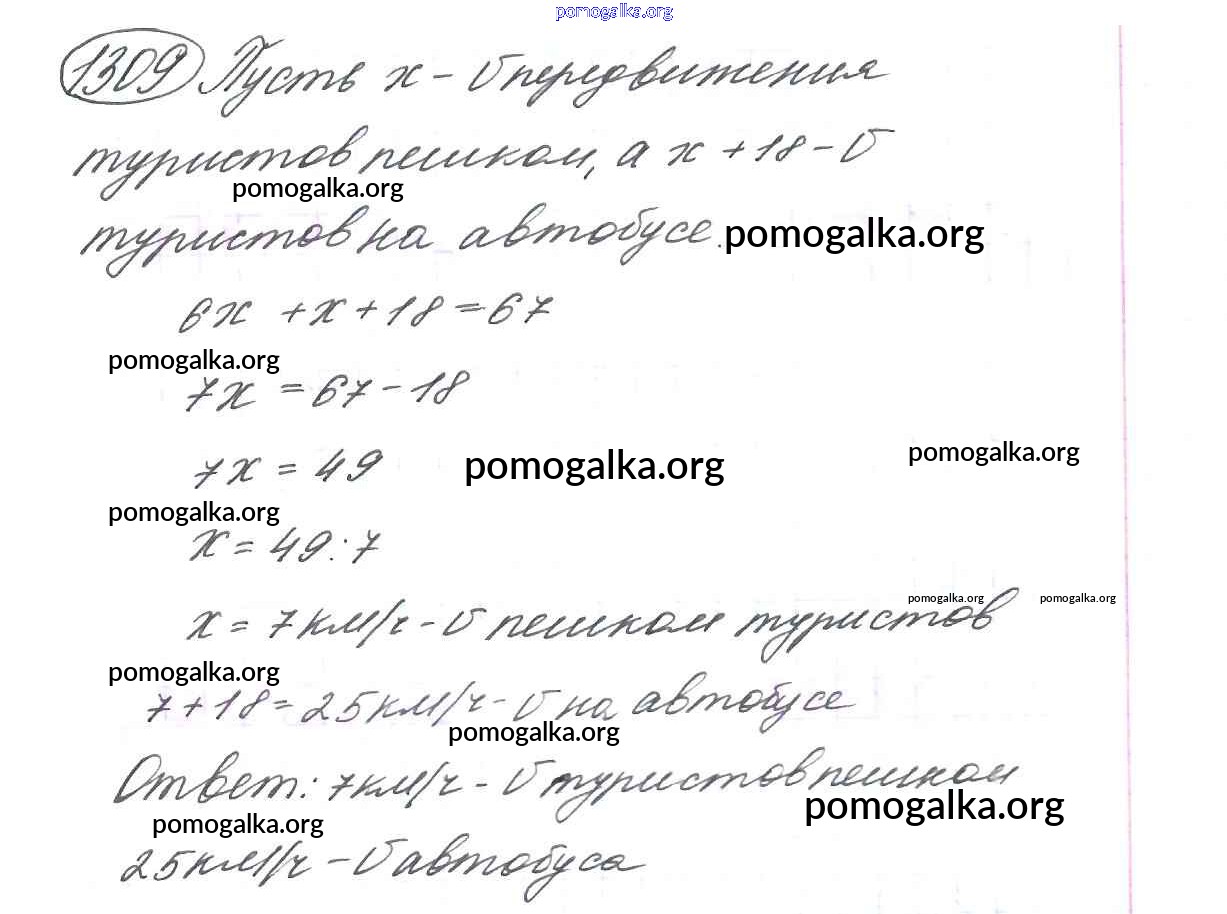 pomogalka.org
1309 Пусть x - υ передвижения
туристов пешком, а x + 18 - υ
pomogalka.org
туристов на автобусе. pomogalka.org
6x + x + 18 = 67
pomogalka.org
7x = 67 - 18
7x = 49 pomogalka.org pomogalka.org
pomogalka.org
x = 49 : 7
pomogalka.org pomogalka.org
x = 7 км/ч - υ пешком туристов
pomogalka.org
7 + 18 = 25 км/ч - υ на автобусе
pomogalka.org
Ответ: 7 км/ч - υ туристов пешком
pomogalka.org
pomogalka.org
25 км/ч - υ автобуса